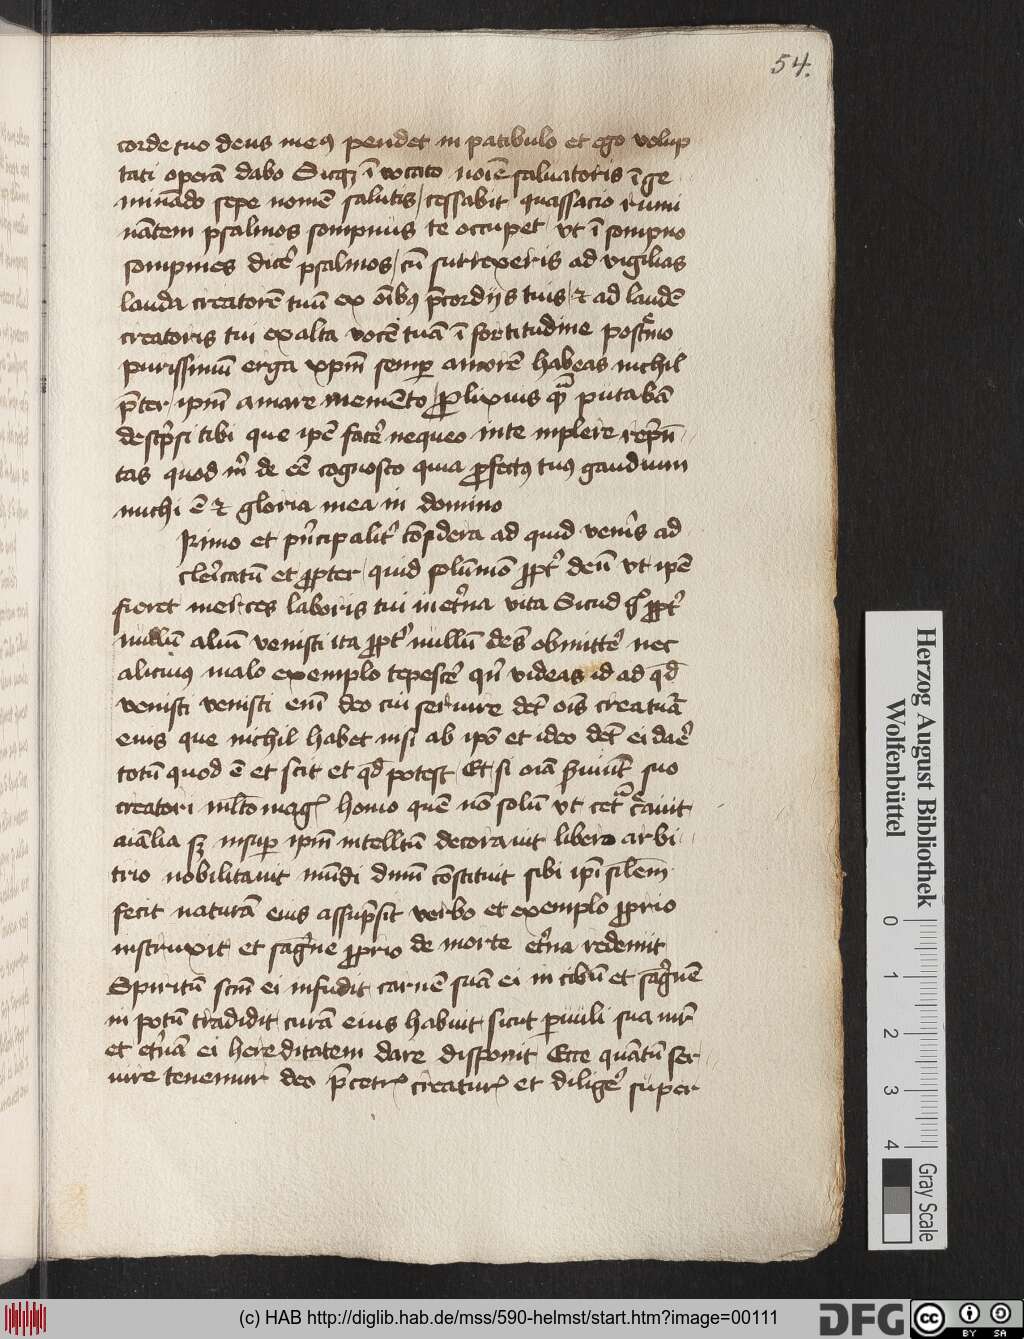 54.
corde tuo deus meꝯ pendet in patibulo et ego volup
tati operā dabo Sicqꝫ ī vocato noīe saluatoris īge
minādo sepe nomē salutis / cessabit quassacio rumi
nātem psalmos sompnus te occupet vt ī sompno
sompnies dicē psalmos / cū surrexeris ad vigilias
lauda creatorē tuū ex oībꝯ p̄cordijs tuis / ⁊ ad laudē
creatoris tui exalta vocē tuā ī fortitudine postr̄mo
purissimū erga xpm̄ semꝑ amorē habeas nichil
p̄ter ipm̄ amare memēto / ꝓlixius qᷓ putabā
descp̄si tibi que ip̄e facē nequeo in te inplere rep̄n
tas quod m̄ de eē cognosco quia ꝓfectꝯ tuꝯ gaudium
michi ē ⁊ gloria mea in domino
Rimo et pn̄cipalit̄ cōsidera ad quid venīs ad
clericatū et ꝓpter quid solūmō ꝓpt̄ deū vt ip̄e
fieret merces laboris tui in et̄na vita Sicud g̊ ꝓpt̄
nullū aliū venisti ita ꝓpt̄ nullū des̄ obmittē nec
alicuiꝯ malo exemplo tepescē qn̄ videas id ad qd̄
venisti venisti enī deo cui seruire det̄ oīs creatuā
eius que nichil habet nisi ab ip̄o et ideo det̄ ei daē
totū quod ē et scit et qd̄ potest Et si oīa s̄uiūt suo
creatori ml̄to magꝭ homo quē nō solū vt cetᷓ c̄auit
aīalia sꝫ insuꝑ ipm̄ intellc̄tū decorauit libero arbi
trio nobilitauit mūdi dnm̄ cōstituit sibi ip̄i sil̄em
fecit naturā eius assup̄sit verbo et exemplo ꝓprio
instruxit et sāgⁱne ꝓprio de morte et̄na redemit
Spiritū scm̄ ei infudit carnē suā ei in cibū et sāgⁱnē
in potū tradidit curā eius habuit sicut ꝑuuli sua mr̄
et et̄nā ei hereditatem dare disponit Ecce quātū ser
uire tenemur deo p̄ cetrꝭ creaturꝭ et diligē super
Herzog August Bibliothek
Wolfenbüttel
0 1 2 3 4
Gray Scale
(c) HAB http://diglib.hab.de/mss/590-helmst/start.htm?image=00111
DFG
cc BY SA